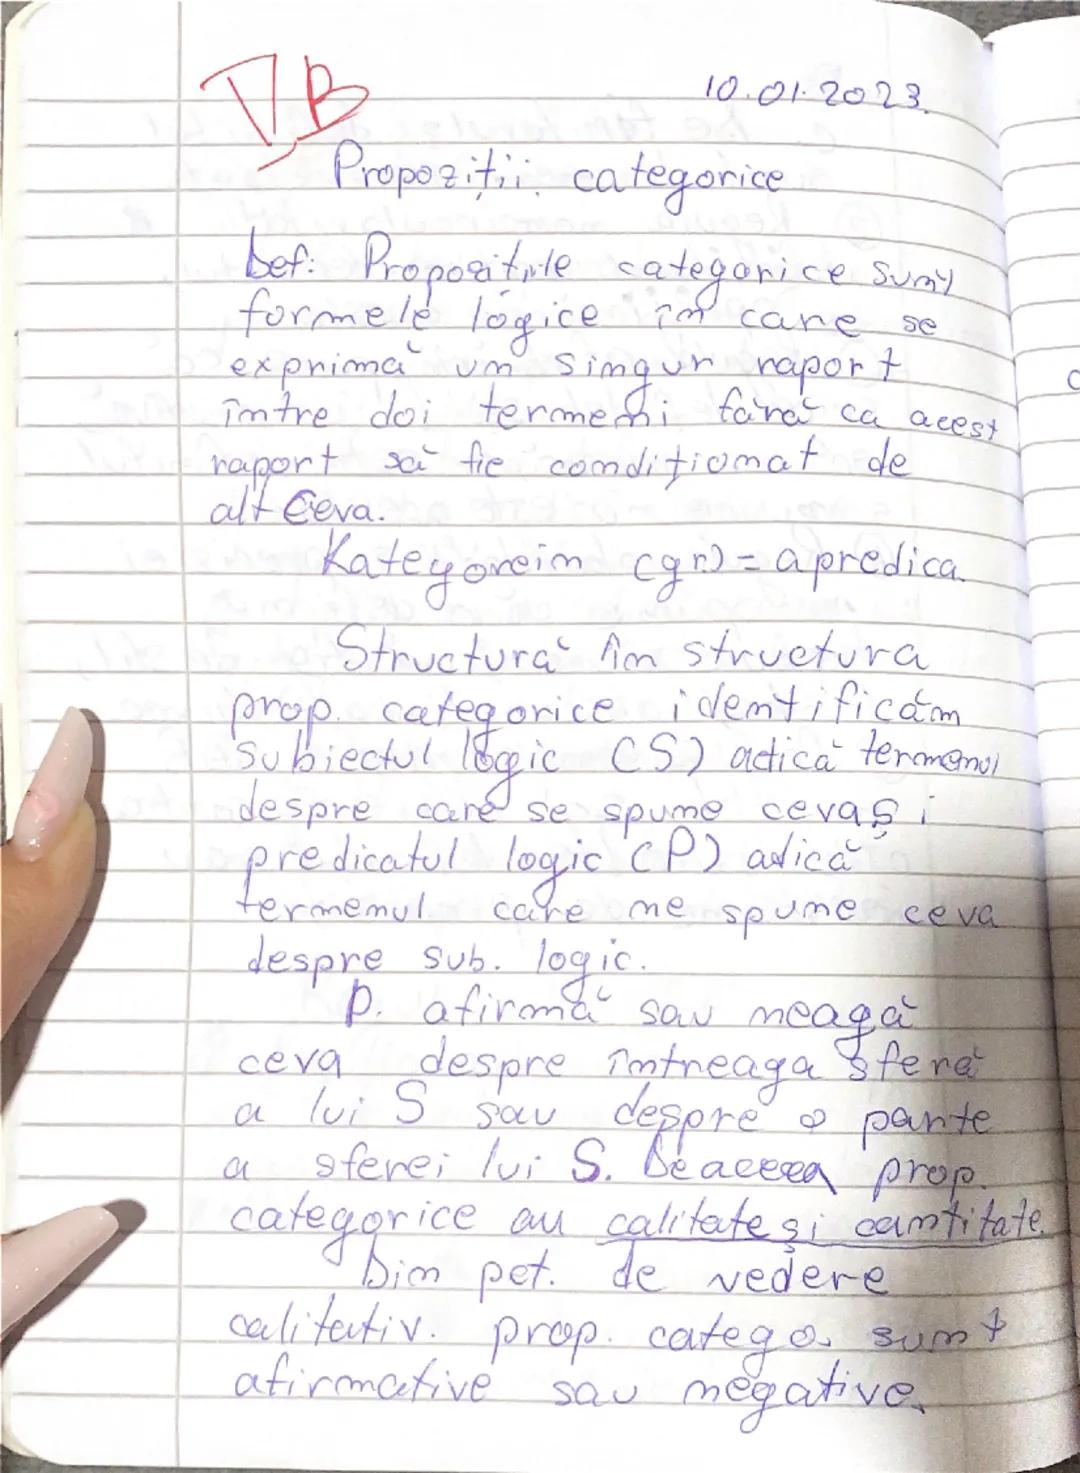 10.01.2023.
Propoziții categorice
Def: Propozițiile categorice sunt
formele logice în care se
exprimă un singur raport
între doi termeni fără ca acest
raport să fie condiționat de
alt ceva.
Kategorein (gr.) = a predica.
Structură în structura
prop. categorice identificăm
subiectul logic (S) adică termenul
despre care se spune ceva și
predicatul logic (P) adică
termenul care ne spune ceva
despre sub. logic.
P. afirmă sau neagă
ceva despre întreaga sferă
a lui S sau despre o parte
a sferei lui S. De aceea prop.
categorice au calitate și cantitate.
Din pct. de vedere
calitativ. prop. catego. sunt
afirmative sau negative.